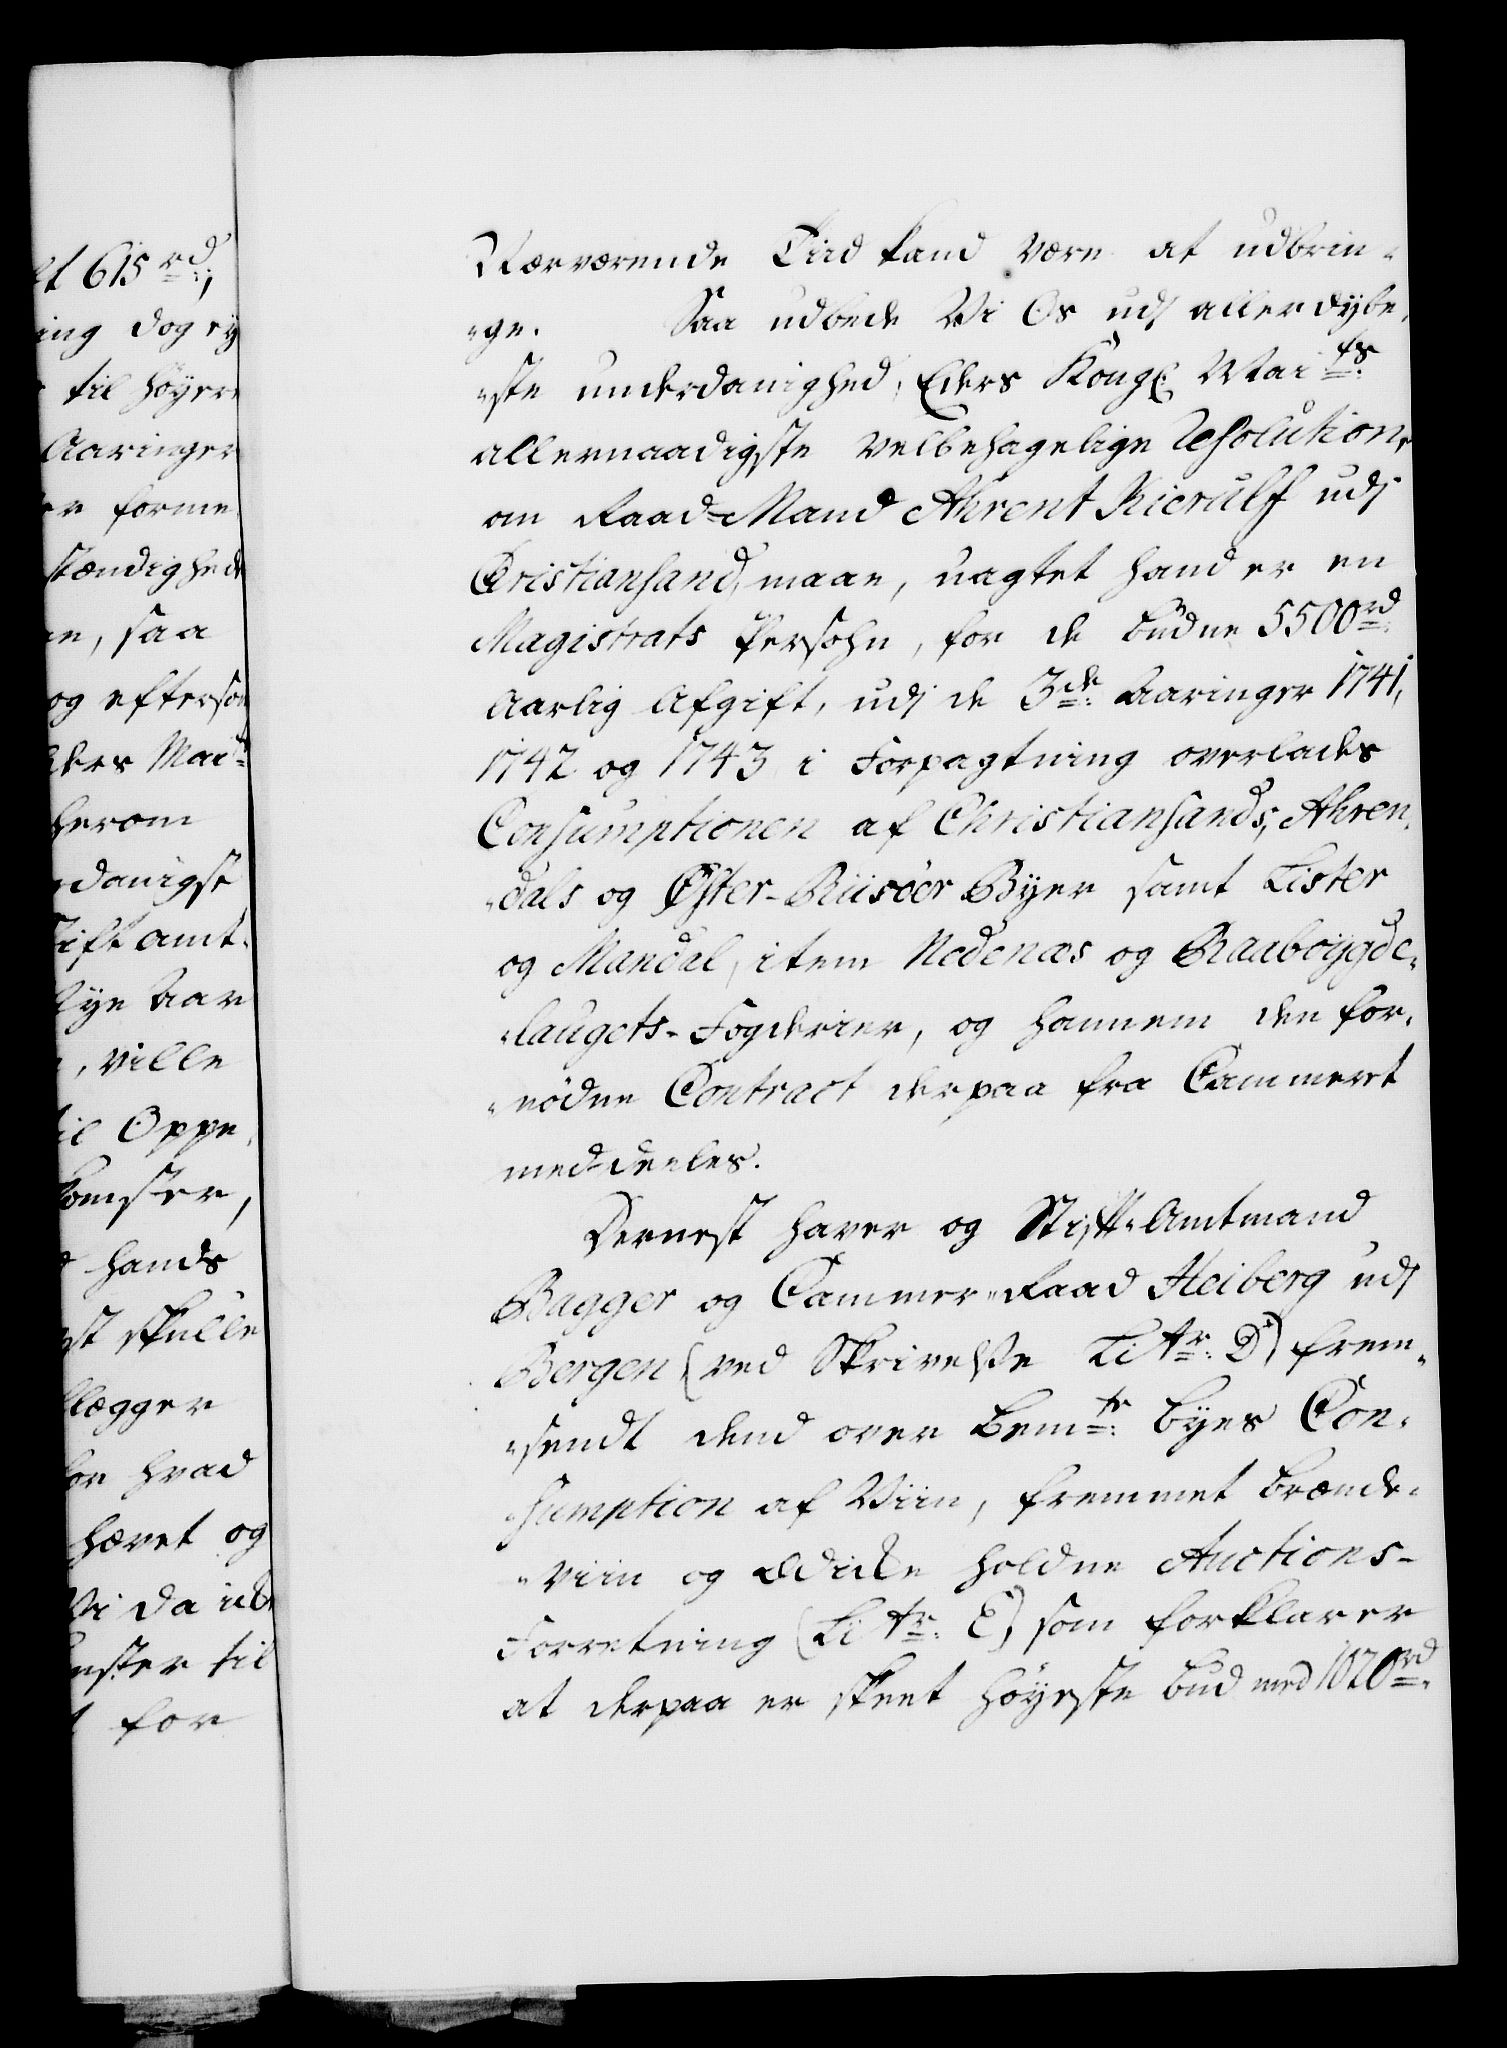 lt 615 rd;
ing dog ey
til høyere
Aaringer
er forme
stændighede
en, saa
og eftersom
Eders Mait
herom
danigst
Stift amt
Nye Aar
, ville
til Oppe
komster,
hands
st skulle
lægger
for hvad
hævet og
Vi da icke
nster til
for
Nærværende Tiid kand være at udbrin-
-ge. Saa udbede Vi Os udj allerdybe-
-ste underdanighed, Eders Kongl. Maits
allernaadigste velbehagelige Resolution,
om Raad-Mand Ahrent Kierulf udj
Christiansand, maae, uagtet hand er en
Magistrats Persohn, for de budne 5500 rd
Aarlig Afgift, udj de 3de Aaringer 1741,
1742 og 1743 i Forpagtning overlades
Consumptionen af Christiansands, Ahren-
-dals og Øster-Riisöer Byer samt Lister
og Mandal, item Nedenæs og Raaboygde-
-laugets-Fogderier, og hannem den for-
-nödne Contract derpaa fra Cammeret
med-deeles.
Dernest haver og Stift-Amtmand
Bagger og Cammer-Raad Heiberg udj
Bergen (ved Skrivelse Littr: D) frem-
-sendt dend over bemte Byes Con-
-sumption af Viin, fremmet Brænde-
-viin og Ædicke holdne Auctions-
Forretning (Littr: E) som forklarer
at derpaa er skeet høyeste bud med 1020 rd